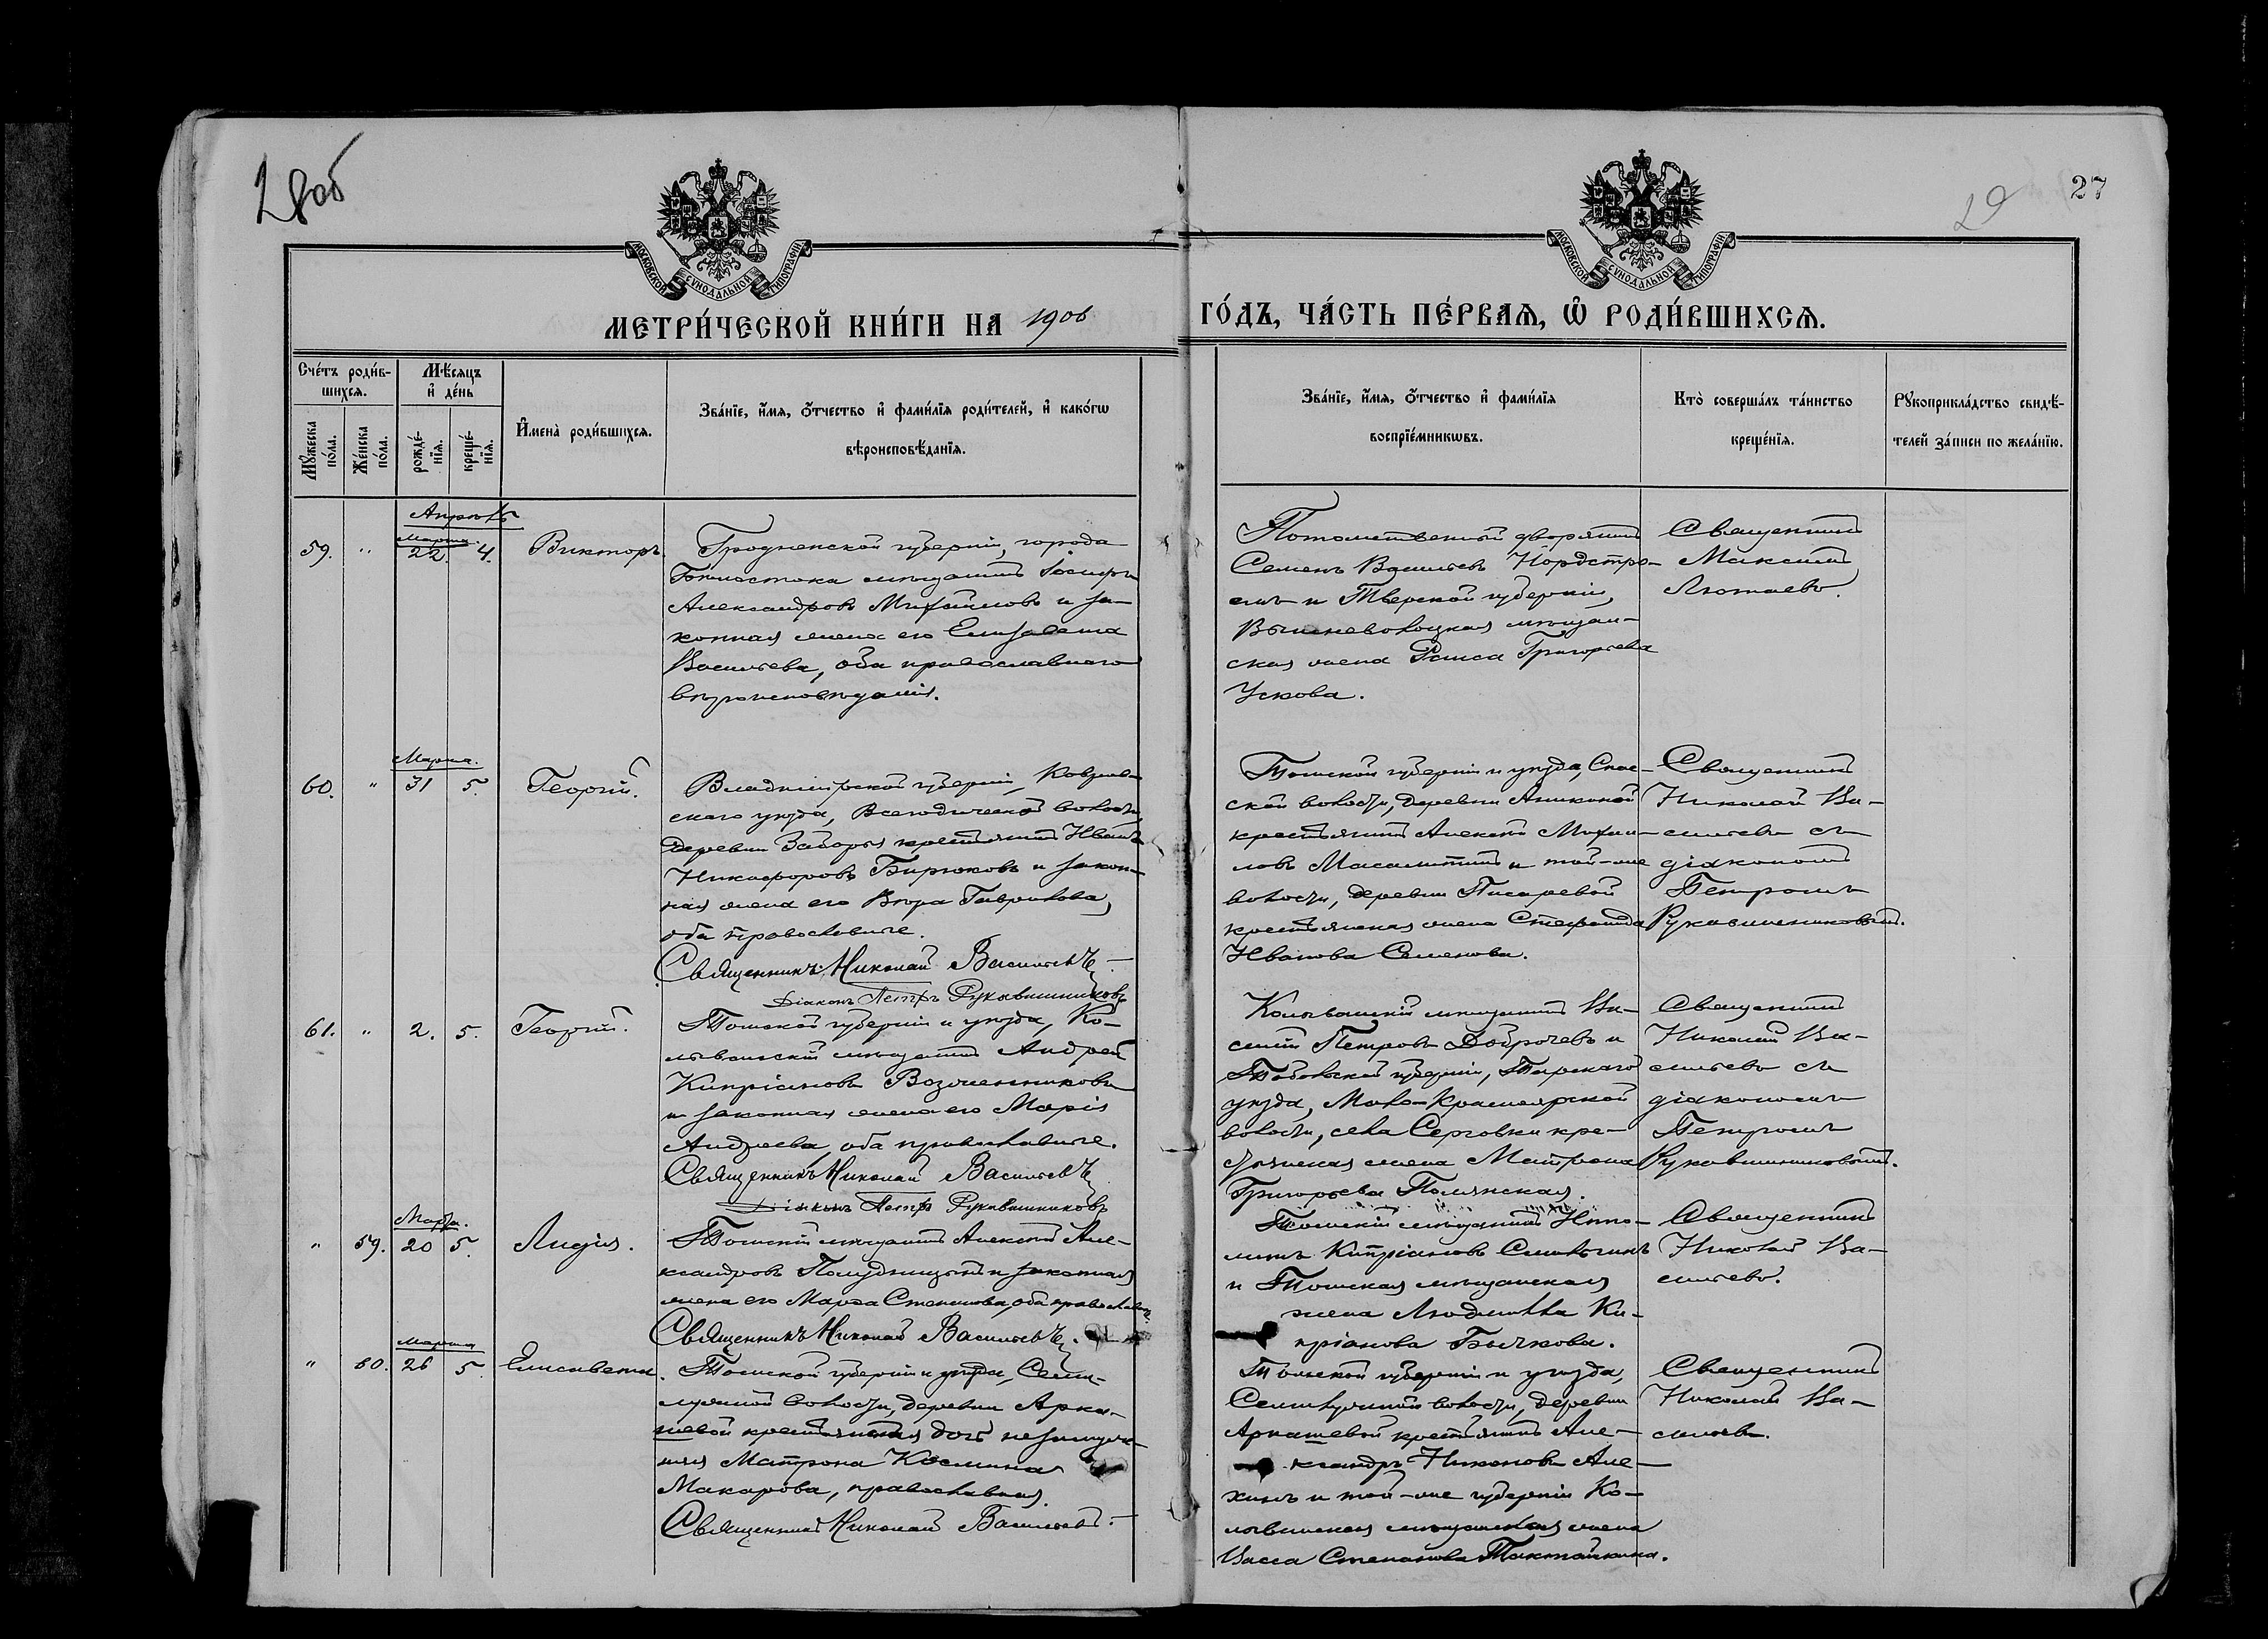 28об
29
27
МОСКОВСКОЙ СѴНОДАЛЬНОЙ ТИПОГРАФІИ
МОСКОВСКОЙ СѴНОДАЛЬНОЙ ТИПОГРАФІИ
МЕТРИ́ЧЕСКОЙ КНИ́ГИ НА 1906
ГО́ДЪ, ЧА́СТЬ ПЕ́РВАѦ, Ѿ РОДИ́ВШИХСѦ.
Сче́тъ роди́в-
шихсѧ.
Мꙋ́жеска по́ла.
Же́нска по́ла.
Мѣ́сѧцъ
и҆ де́нь
рожде́-
нїѧ.
креще́-
нїѧ.
И҆мена̀ роди́вшихсѧ.
Зва́нїе, и҆́мѧ, ѻ҆́тчество и҆ фами́лїѧ роди́телей, и҆ како́гѡ
вѣроисповѣ́данїѧ.
Зва́нїе, и҆́мѧ, ѻ҆́тчество и҆ фами́лїѧ
воспрїе́мникѡвъ.
Кто̀ соверша́лъ та́инство
креще́нїѧ.
Рꙋкоприкла́дство свидѣ́-
телей за́писи по жела́нїю.
Апрѣль
Марта
59. " 22. 4. Викторъ
Гродненской губерніи, города
Бѣлостока мѣщанинъ Іосифъ
Александровъ Михайловъ и за-
конная жена его Елизавета
Васильева, оба православнаго
вѣроисповѣданія.
Потомственный дворянинъ
Семенъ Васильевъ Нордстре-
емъ и Тверской губерніи,
Вышневолоцкая мѣщан-
ская жена Раиса Григорьева
Ускова.
Священникъ
Максимъ
Марта.
60. " 31 5. Георгій.
Владимірской губерніи, Ковров-
скаго уѣзда, Всегодической волости,
деревни Заборья крестьянинъ Иванъ
Никифоровъ Бирюковъ и закон-
ная жена его Вѣра Гаврилова,
оба православные.
Священникъ Николай Васильевъ
Діаконъ Петръ Рукавишниковъ
Томской губерніи и уѣзда, Спас-
ской волости, деревни Аникиной
крестьянинъ Алексѣй Михаи-
ловъ и той-же
волости, деревни Писаревой
крестьянская жена Стефанида
Иванова Семенова.
Священникъ
Николай Ва-
сильевъ съ
діакономъ
Петромъ
Рукавишниковымъ.
61. " 2. 5. Георгій.
Томской губерніи и уѣзда, Ко-
лыванскій мѣщанинъ Андрей
Кипріановъ
и законная жена его Марія
Андреева, оба православные.
Священникъ Николай Васильевъ
Діаконъ Петръ Рукавишниковъ
Колыванскій мѣщанинъ Ва-
силій Петровъ и
Тобольской губерніи, Тарскаго
уѣзда, Мало-Красноярской
волости, села Серговки кре-
стьянская жена Матрона
Григорьева Полянская.
Священникъ
Николай Ва-
сильевъ съ
діакономъ
Петромъ
Рукавишниковымъ.
Марта.
" 59. 20 5. Лидія.
Томскій мѣщанинъ Алексѣй Але-
ксандровъ и законная
жена его Марѳа Степанова, оба православн
Священникъ Николай Васильевъ.
Томскій мѣщанинъ Иппо-
литъ Кипріановъ
и Томская мѣщанская
жена Людмила Ки-
пріанова Бычкова.
Священникъ
Николай Ва-
сильевъ.
Марта
" 60. 26 5. Елисавета.
Томской губерніи и уѣзда, Семи-
лужной волости, деревни Арка-
шевой крестьянская дочь незамуж-
няя Матрона Космина
Макарова, православная.
Священникъ Николай Васильевъ.
Томской губерніи и уѣзда,
Семилужной волости, деревни
Аркашевой крестьянинъ Але-
ксандръ Никоновъ Але-
хинъ и той-же губерніи Ко-
лыванская мѣщанская жена
Васса Степанова
Священникъ
Николай Ва-
сильевъ.